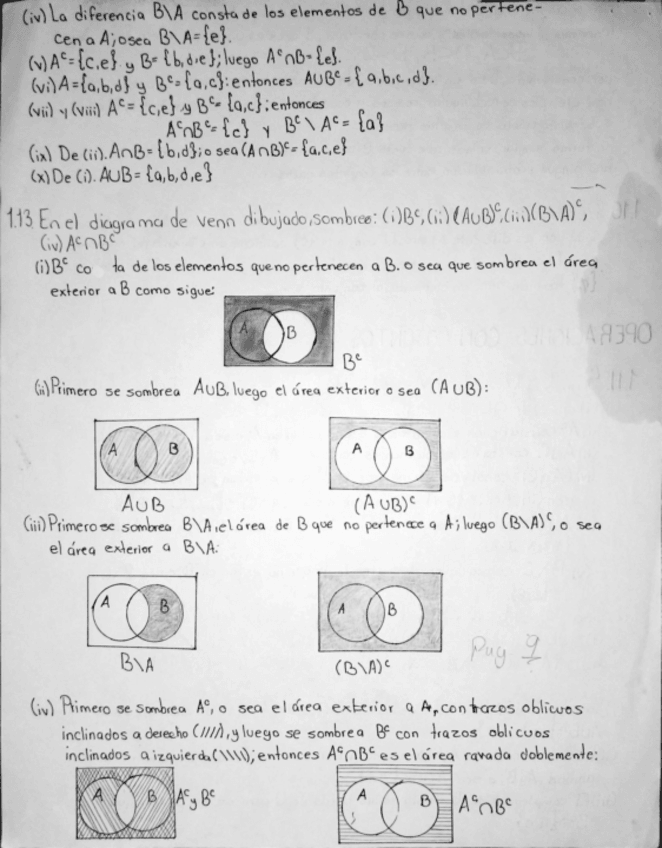 (iv) La diferencia B\A consta de los elementos de B que no pertene-
cen a A; osea B\A={e}.
(v) Aᶜ={c,e} y B={b,d,e}; luego Aᶜ∩B={e}.
(vi) A={a,b,d} y Bᶜ={a,c}: entonces A∪Bᶜ={a,b,c,d}.
(vii) y (viii) Aᶜ={c,e} y Bᶜ={a,c}; entonces
Aᶜ∩Bᶜ={c} y Bᶜ\Aᶜ={a}
(ix) De (ii). A∩B={b,d}; o sea (A∩B)ᶜ={a,c,e}
(x) De (i). A∪B={a,b,d,e}
1.13 En el diagrama de venn dibujado, sombree: (i) Bᶜ, (ii) (A∪B)ᶜ, (iii) (B\A)ᶜ,
(iv) Aᶜ∩Bᶜ
(i) Bᶜ co ta de los elementos que no pertenecen a B. o sea que sombrea el área
exterior a B como sigue:
A B
Bᶜ
(ii) Primero se sombrea A∪B, luego el área exterior o sea (A∪B):
A B A B
A∪B (A∪B)ᶜ
(iii) Primero se sombrea B\A, el área de B que no pertenece a A; luego (B\A)ᶜ, o sea
el área exterior a B\A:
A B A B
B\A (B\A)ᶜ
Pag 9
(iv) Primero se sombrea Aᶜ, o sea el área exterior a A, con trazos oblicuos
inclinados a derecho (////), y luego se sombrea Bᶜ con trazos oblicuos
inclinados a izquierda (\\\\); entonces Aᶜ∩Bᶜ es el área rayada doblemente:
A B Aᶜ y Bᶜ A B Aᶜ∩Bᶜ